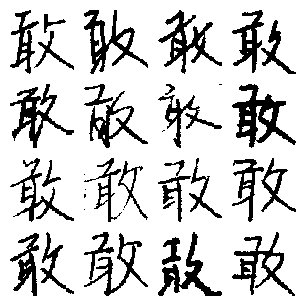 敢敢敢敢
敢敢敢敢
敢敢敢敢
敢敢敢敢